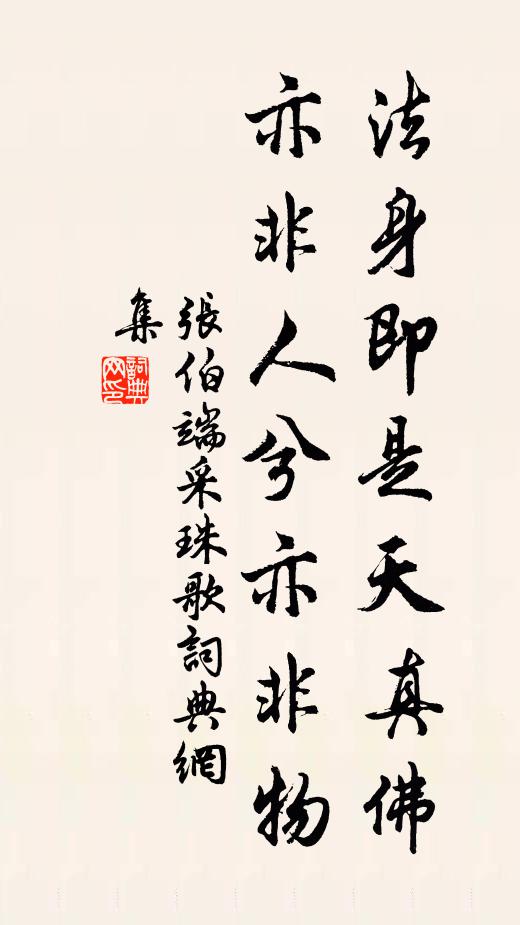 法身即是天真佛
亦非人兮亦非物
張伯端采珠歌詞典網
集
詞典
网印